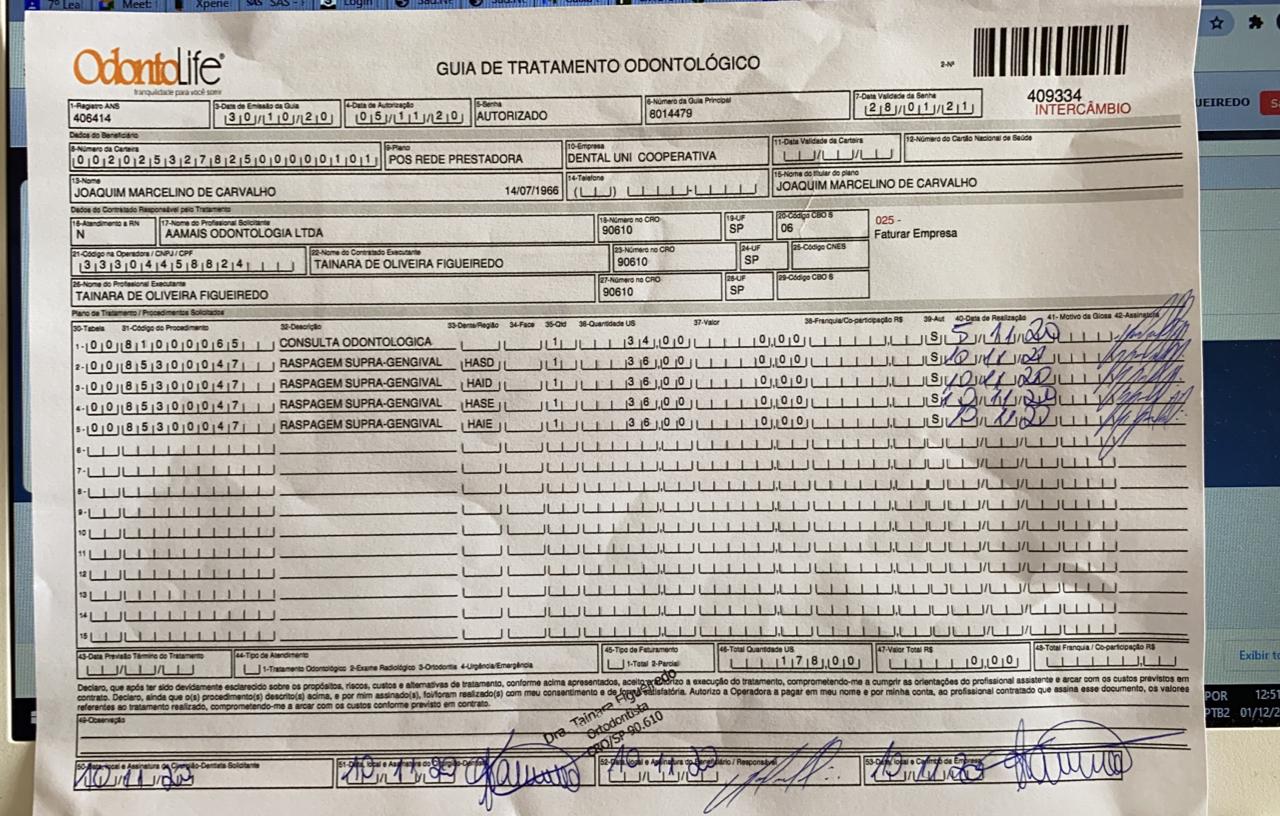 7º Lea Meet: Xpene SAS - Login
OdontoLife
tranquilidade para você sorrir
GUIA DE TRATAMENTO ODONTOLÓGICO
2-Nº
409334
INTERCÂMBIO
1-Registro ANS 3-Data de Emissão da Guia 4-Data de Autorização 5-Senha 6-Número da Guia Principal 7-Data Validade da Senha
406414 30/10/20 05/11/20 AUTORIZADO 8014479 28/01/21
Dados do Beneficiário
8-Número da Carteira 9-Plano 10-Empresa 11-Data Validade da Carteira 12-Número do Cartão Nacional de Saúde
00202532782500000101 POS REDE PRESTADORA DENTAL UNI COOPERATIVA
13-Nome 14-Telefone 15-Nome do titular do plano
JOAQUIM MARCELINO DE CARVALHO 14/07/1966 JOAQUIM MARCELINO DE CARVALHO
Dados do Contratado Responsável pelo Tratamento
16-Atendimento a RN 17-Nome do Profissional Solicitante 18-Número no CRO 19-UF 20-Código CBO S
N AAMAIS ODONTOLOGIA LTDA 90610 SP 06
025 -
Faturar Empresa
21-Código na Operadora / CNPJ / CPF 22-Nome do Contratado Executante 23-Número no CRO 24-UF 25-Código CNES
33304458824 TAINARA DE OLIVEIRA FIGUEIREDO 90610 SP
26-Nome do Profissional Executante 27-Número no CRO 28-UF 29-Código CBO S
TAINARA DE OLIVEIRA FIGUEIREDO 90610 SP
Plano de Tratamento / Procedimentos Solicitados
30-Tabela 31-Código do Procedimento 32-Descrição 33-Dente/Região 34-Face 35-Qtd 36-Quantidade US 37-Valor 38-Franquia/Co-participação R$ 39-Aut 40-Data de Realização 41- Motivo da Glosa 42-Assinatura
1- 00 81000065 CONSULTA ODONTOLOGICA 1 34,00 0,00 S 5/11/20
2- 00 85300047 RASPAGEM SUPRA-GENGIVAL HASD 1 36,00 0,00 S
3- 00 85300047 RASPAGEM SUPRA-GENGIVAL HAID 1 36,00 0,00 S 10/11/20
4- 00 85300047 RASPAGEM SUPRA-GENGIVAL HASE 1 36,00 0,00 S 10/11/20
5- 00 85300047 RASPAGEM SUPRA-GENGIVAL HAIE 1 36,00 0,00 S
6-
7-
8-
9-
10
11
12
13
14
15
43-Data Previsão Término do Tratamento 44-Tipo de Atendimento 45-Tipo de Faturamento 46-Total Quantidade US 47-Valor Total R$ 48-Total Franquia / Co-participação R$
1-Tratamento Odontológico 2-Exame Radiológico 3-Ortodontia 4-Urgência/Emergência 1-Total 2-Parcial 178,00 0,00
Declaro, que após ter sido devidamente esclarecido sobre os propósitos, riscos, custos e alternativas de tratamento, conforme acima apresentados, aceito e autorizo a execução do tratamento, comprometendo-me a cumprir as orientações do profissional assistente e arcar com os custos previstos em
contrato. Declaro, ainda que o(s) procedimento(s) descrito(s) acima, e por mim assinado(s), foi/foram realizado(s) com meu consentimento e de forma satisfatória. Autorizo a Operadora a pagar em meu nome e por minha conta, ao profissional contratado que assina esse documento, os valores
referentes ao tratamento realizado, comprometendo-me a arcar com os custos conforme previsto em contrato.
49-Observação
Dra. Tainara Figueiredo
Ortodontista
CRO/SP 90.610
50-Data, local e Assinatura do Cirurgião-Dentista Solicitante 51-Data, local e Assinatura do Cirurgião-Dentista 52-Data, local e Assinatura do Beneficiário / Responsável 53-Data, local e Carimbo da Empresa
10/11/20 10/11/20 10/11/20 10/11/20
UEIREDO
Exibir to
POR 12:51
PTB2 01/12/2